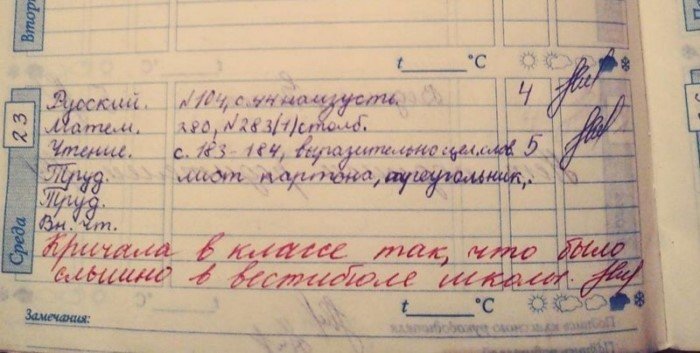 Вторн
t °C
Русский. №104, с.44 наизусть. 4
23
Матем. 280, №283(1) столб.
Чтение. с. 183-184, выразительно 5
Труд. лист картона, треугольник,
Труд.
Вн. чт.
Среда
Кричала в классе так, что было
слышно в вестибюле школы.
t °C
Замечания: